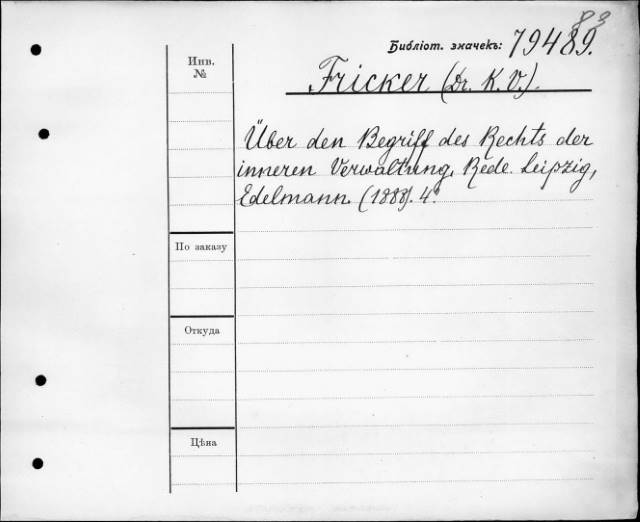 Библіот. значекъ: 79489.
Инв.
№
Fricker (Dr. K. V.).
Über den Begriff des Rechts der
inneren Verwaltung. Rede. Leipzig,
Edelmann. (1888). 4°
По заказу
Откуда
Цѣна